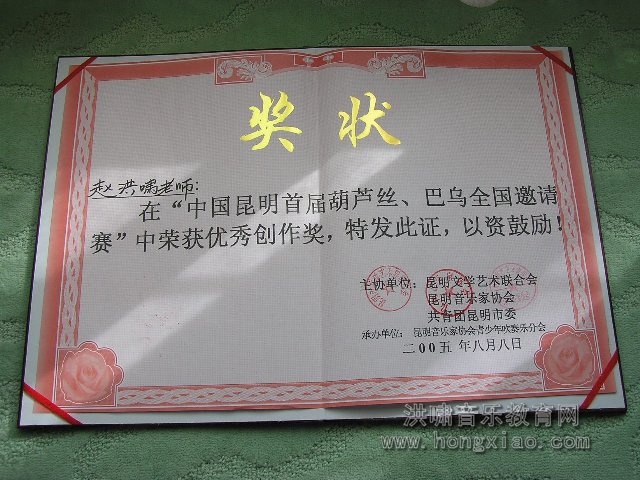 奖状
赵洪啸老师:
在“中国昆明首届葫芦丝、巴乌全国邀请
赛”中荣获优秀创作奖，特发此证，以资鼓励！
主协单位：昆明文学艺术联合会
昆明音乐家协会
共青团昆明市委
承办单位：昆明音乐家协会青少年吹奏乐分会
二00五年八月八日
洪啸音乐教育网
www.hongxiao.com